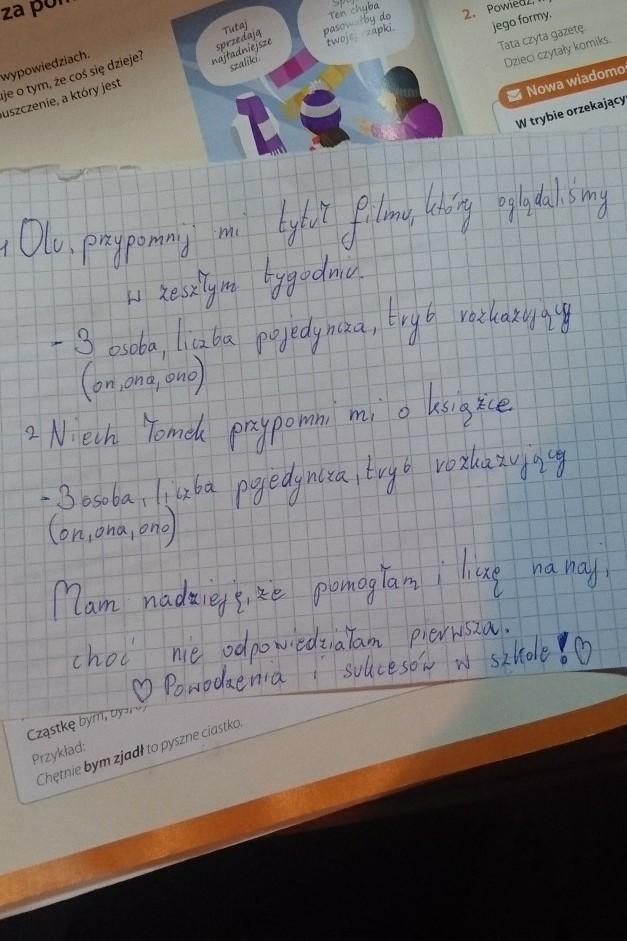 za
wypowiedziach.
uje o tym, że coś się dzieje?
uszczenie, a który jest
Tutaj
sprzedają
najładniejsze
szaliki.
Ten chyba
pasowałby do
twojej czapki.
2. Powiedz,
jego formy.
Tata czyta gazetę.
Dzieci czytały komiks.
Nowa wiadomo
W trybie orzekający
1 Olu, przypomnij mi tytuł filmu, który oglądaliśmy
w zeszłym tygodniu.
- 3 osoba, liczba pojedyncza, tryb rozkazujący
(on, ona, ono)
2 Niech Tomek przypomni mi o książce
- 3 osoba, liczba pojedyncza, tryb rozkazujący
(on, ona, ono)
Mam nadzieję, że pomogłam i liczę na naj,
choć nie odpowiedziałam pierwsza.
♡ Powodzenia i sukcesów w szkole! ♡
Cząstkę bym,
Przykład:
Chętnie bym zjadł to pyszne ciastko.